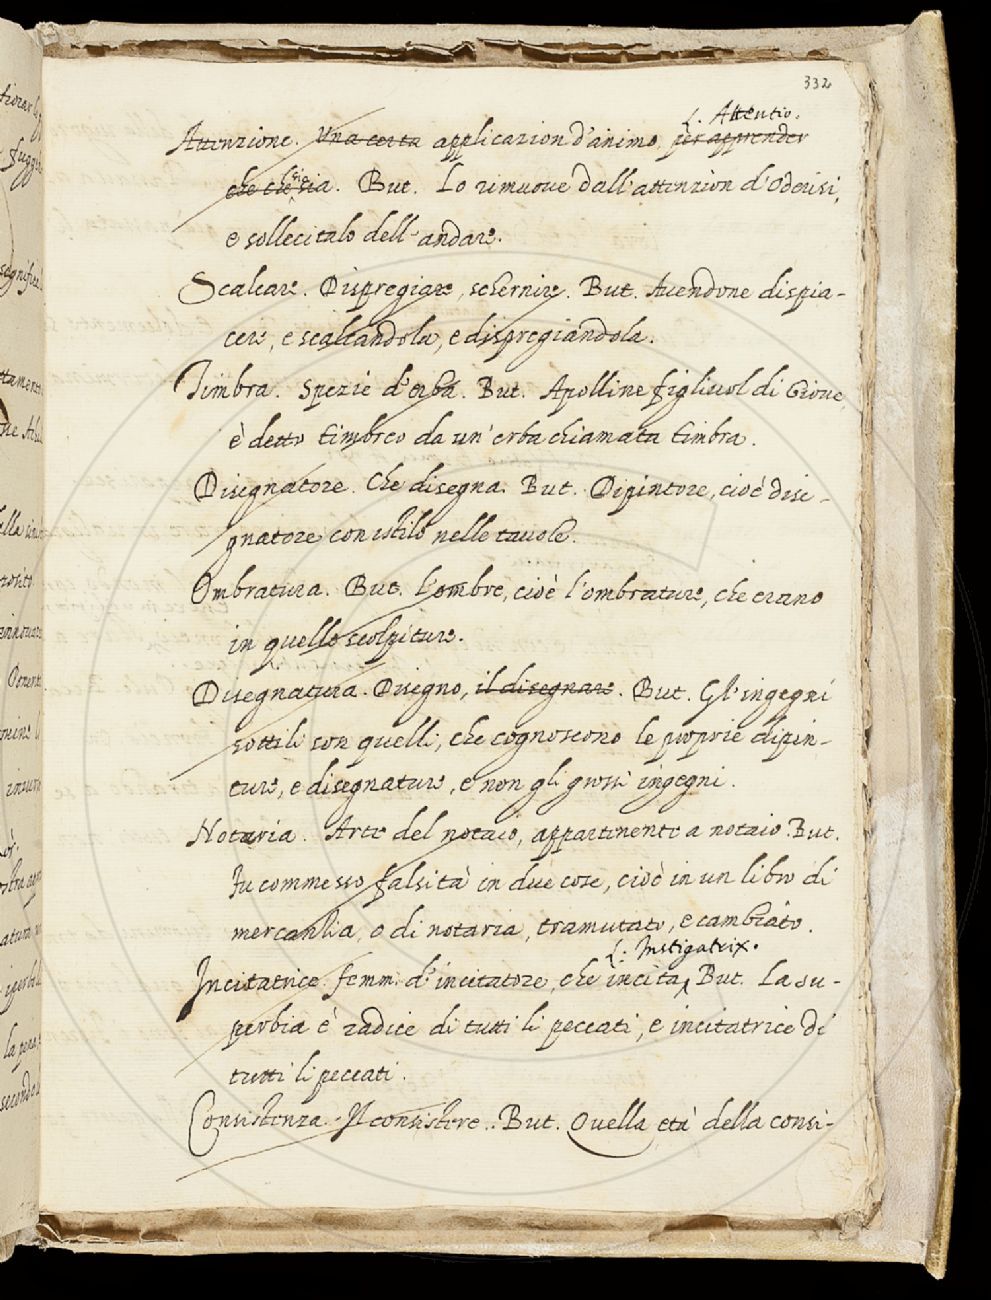 332
L. Attentio.
Attenzione. Una certa applicazion d'animo per apprender
che che sia sia. But. Lo rimuove dall'attenzion d'Oderisi,
e sollecitalo dell'andare.
Scalcare. Dispregiare, schernire. But. Avendone dispia-
cere, e scalcandola, e dispregiandola.
Timbra. Spezie d'erba. But. Apolline figliuol di Giove,
è detto timbreo da un'erba chiamata timbra.
Disegnatore. Che disegna. But. Dipintore, cioè dise-
gnatore con istilo nelle tavole.
Ombratura. But. L'ombre, cioè l'ombrature, che erano
in quelle scolpiture.
Disegnatura. Disegno, il disegnare. But. Gl'ingegni
sottili son quelli, che cognoscono le proprie dipin-
ture, e disegnature, e non gli grossi ingegni.
Notaria. Arte del notaio, appartinente a notaio. But.
Fu commesso falsità in due cose, cioè in un libro di
mercanlia, o di notaria, tramutato, e cambiato.
L. Instigatrix.
Incitatrice femm. d'incitatore, che incita. But. La su-
perbia è radice di tutti li peccati, e incitatrice di
tutti li peccati.
Consistenza. Il consistere. But. Quella età della consi-